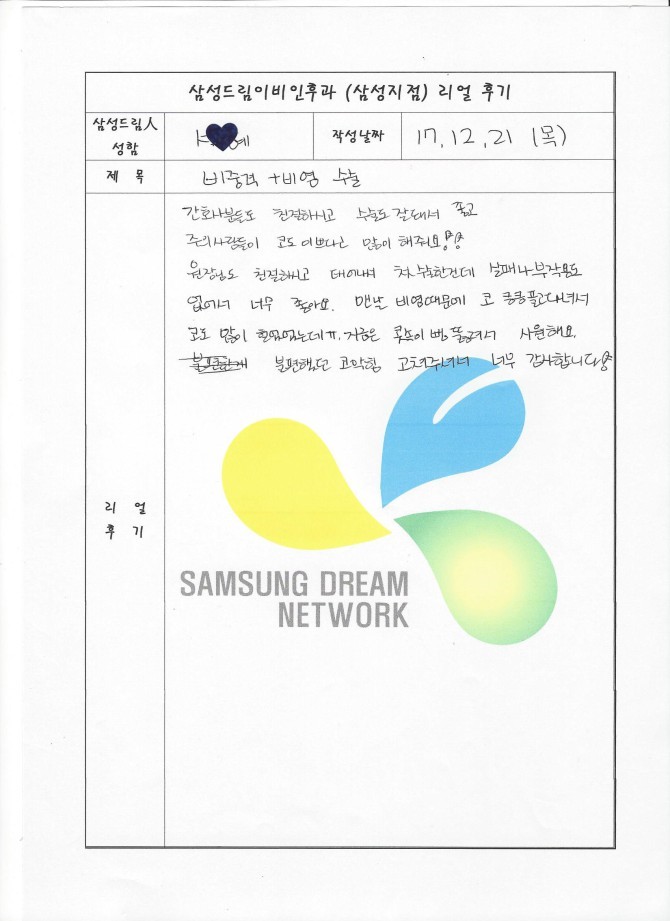 삼성드림이비인후과 (삼성지점) 리얼 후기
삼성드림人
성함
예
작성날짜
17, 12, 21 (목)
제 목
비중격 +비염 수술
간호사분들도 친절하시고 수술도 잘돼서 좋고
주위사람들이 코도 이쁘다고 많이 해줘요
원장님도 친절하시고 태어나서 첫 수술한건데 실패나 부작용도
없어서 너무 좋아요. 맨날 비염때문에 코 킁킁 풀고다녀서
코도 많이 헐었었는데ㅠ. 지금은 콧속이 뻥 뚫려서 시원해요.
불편했던 코막힘 고쳐주셔서 너무 감사합니다
리 얼
후 기
SAMSUNG DREAM
NETWORK